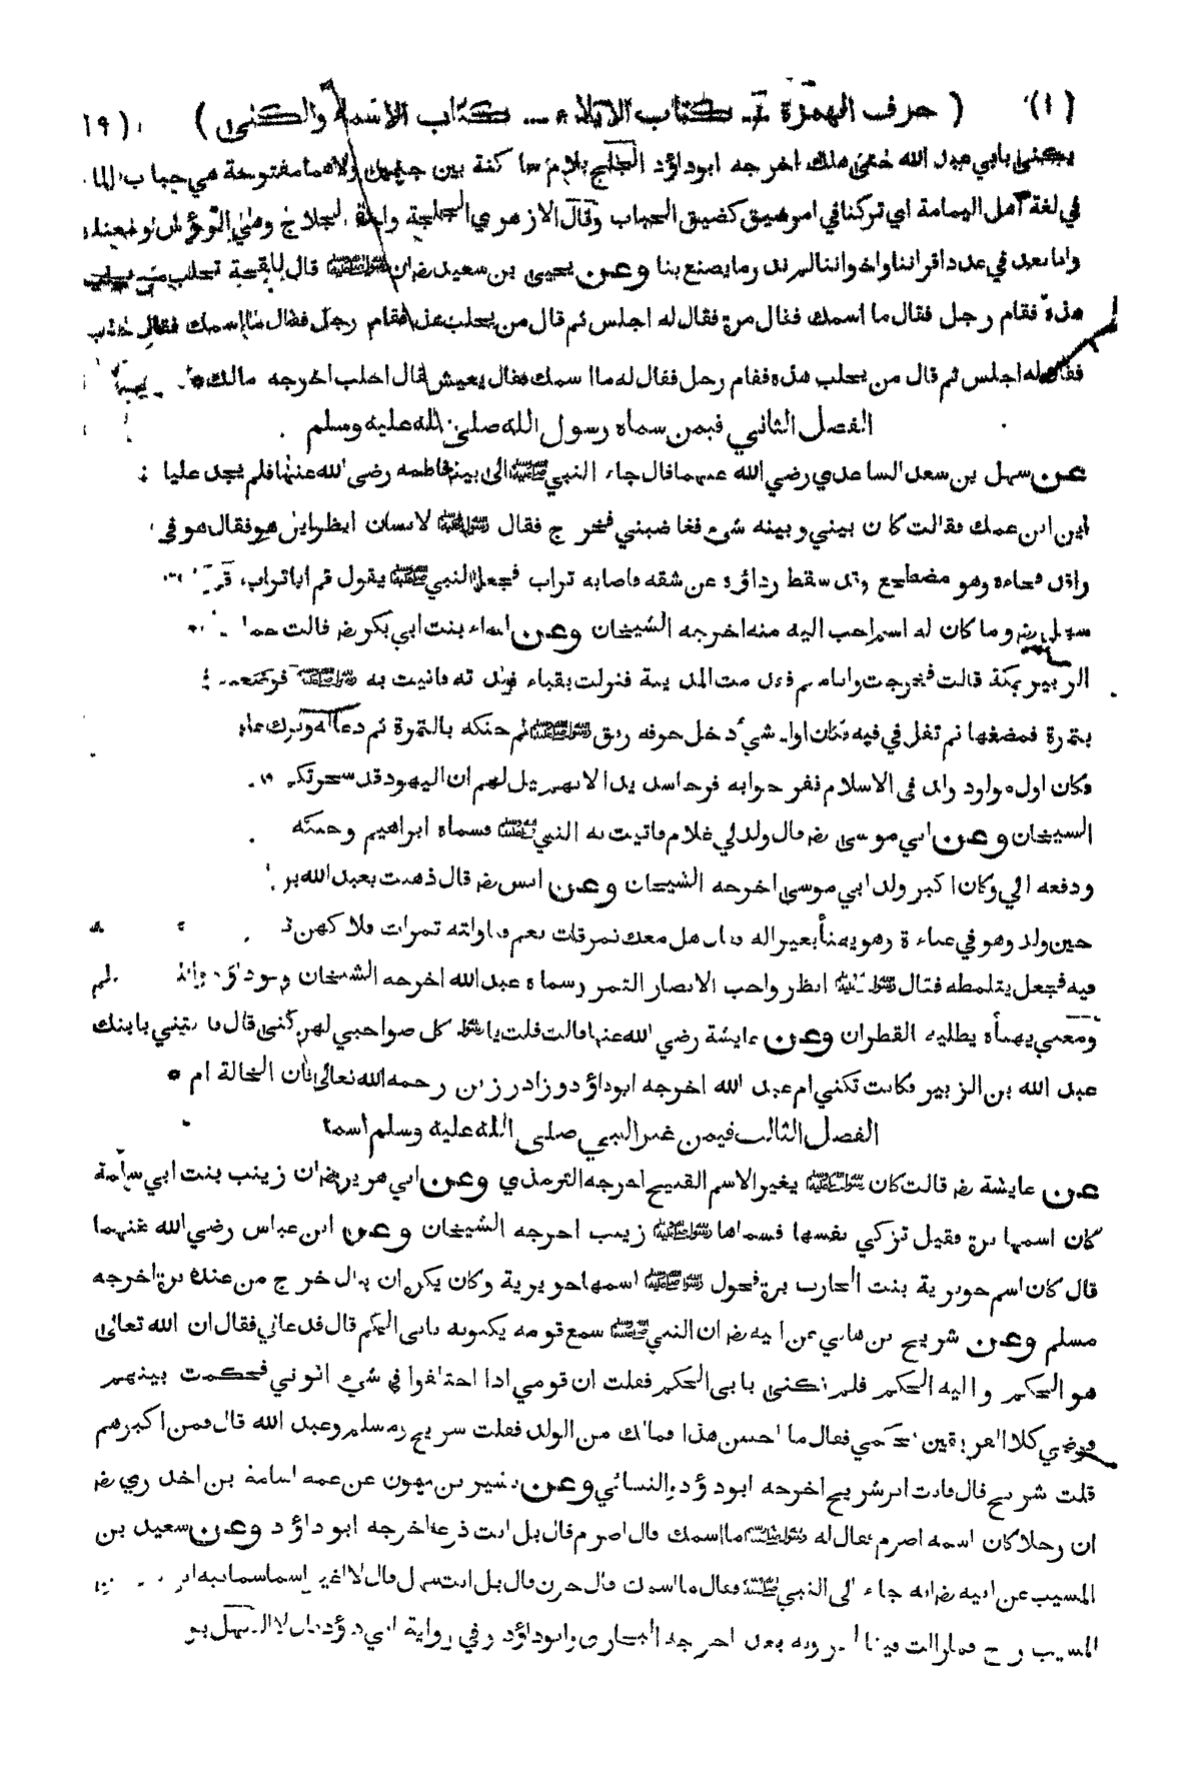 (١) ( حرف الهمزة كتاب الايلاء ... كتاب الاسماء والكنى ) (١٩
بابي عبد الله حتى هلك اخرجه ابوداؤد الجلج بلام ساكنة بين جيمين ولاهما مفتوحة هي حباب الما
في لغة اهل اليمامة اي تركنا في امر ضيق كضيق الحباب وقال الازهري الجلجة واحدة الجلاج
وانا بعد في عدد اقراننا واخواننا لم ند رما يصنع بنا وعن يحيى بن سعيد رضـ ان ﷺ قال للقحة تحلب من يحلب
هذه فقام رجل فقال ما اسمك فقال مرة فقال له اجلس ثم قال من يحلب هذه فقام رجل فقال ما اسمك فقال حرب
فقال له اجلس ثم قال من يحلب هذه فقام رجل فقال له ما اسمك فقال يعيش قال احلب اخرجه مالك
الفصل الثاني فيمن سماه رسول الله صلى الله عليه وسلم
عن سهل بن سعد الساعدي رضي الله عنهما قال جاء النبي ﷺ الى بيت فاطمه رضى الله عنها فلم يجد عليا
اين ابن عمك فقالت كان بيني وبينه شيء فغاضبني فخرج فقال ﷺ لانسان انظر اين هو فقال هو في
راقد فجاءه وهو مضطجع وقد سقط رداؤه عن شقه فاصابه تراب فجعل النبي ﷺ يقول قم اباتراب
سهل رضـ وما كان له اسم احب اليه منه اخرجه الشيخان وعن اسماء بنت ابي بكر رضـ قالت
الزبير بمكة قالت فخرجت وانا متم فقدمت المدينة فنزلت بقباء فولدته فاتيت به ﷺ فوضعه
بتمرة فمضغها ثم تفل في فيه فكان اول شيء دخل جوفه ريق ﷺ ثم حنكه بالتمرة ثم دعا له وبرك عليه
فكان اول مولود ولد في الاسلام ففرحوا به فرحا شديدا لانهم قيل لهم ان اليهود قد سحرتكم
الشيخان وعن ابي موسى رضـ قال ولد لي غلام فاتيت به النبي ﷺ فسماه ابراهيم وحنكه
ودفعه الي وكان اكبر ولد ابي موسى اخرجه الشيخان وعن انس رضـ قال ذهبت بعبد الله
حين ولد وهو في عباءة وهو يهنأ بعيرا له فقال هل معك تمر قلت نعم فناولته تمرات فلاكهن
فيه فجعل يتلمظه فقال ﷺ انظروا حب الانصار التمر وسماه عبد الله اخرجه الشيخان وابو داؤد
ومعنى يهنأه يطليه القطران وعن عايشة رضي الله عنها قالت قلت يا رسول كل صواحبي لهن كنى قال فاكتني بابنك
عبد الله بن الزبير فكانت تكنى ام عبد الله اخرجه ابوداؤد وزاد رزين رحمه الله تعالى فان الخالة ام *
الفصل الثالث فيمن غير النبي صلى الله عليه وسلم اسمه
عن عايشة رضـ قالت كان ﷺ يغير الاسم القبيح اخرجه الترمذي وعن ابي هريرة رضـ ان زينب بنت ابي سلمة
كان اسمها برة فقيل تزكي نفسها فسماها ﷺ زينب اخرجه الشيخان وعن ابن عباس رضي الله عنهما
قال كان اسم جويرية بنت الحارث برة فحول ﷺ اسمها جويرية وكان يكره ان يقال خرج من عند برة اخرجه
مسلم وعن شريح بن هاني عن ابيه رضـ ان النبي ﷺ سمع قومه يكنونه بابي الحكم قال فدعاني فقال ان الله تعالى
هو الحكم واليه الحكم فلم تكنى بابي الحكم فقلت ان قومي اذا اختلفوا في شيء اتوني فحكمت بينهم
فرضي كلا الفريقين بحكمي فقال ما احسن هذا فمالك من الولد فقلت شريح ومسلم وعبد الله قال فمن اكبرهم
قلت شريح قال فانت ابو شريح اخرجه ابوداؤد والنسائي وعن بشير بن ميمون عن عمه اسامة بن اخدري رضـ
ان رجلا كان اسمه اصرم فقال له ﷺ ما اسمك قال اصرم قال بل انت زرعة اخرجه ابوداؤد وعن سعيد بن
المسيب عن ابيه رضـ انه جاء الى النبي ﷺ فقال ما اسمك قال حزن قال بل انت سهل قال لا اغير اسما سمانيه ابي
المسيب رح فما زالت فينا الحزونة بعد اخرجه البخاري وابوداؤد وفي رواية ابي داؤد قال لا السهل